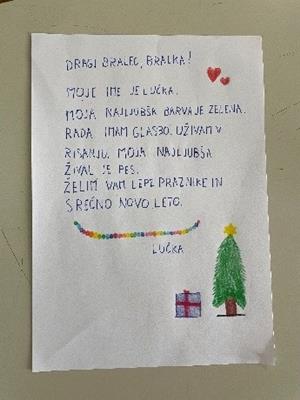 DRAGI BRALEC, BRALKA!
MOJE IME JE LUČKA.
MOJA NAJLJUBŠA BARVA JE ZELENA.
RADA IMAM GLASBO. UŽIVAM V
RISANJU. MOJA NAJLJUBŠA
ŽIVAL JE PES.
ŽELIM VAM LEPE PRAZNIKE IN
SREČNO NOVO LETO.
LUČKA